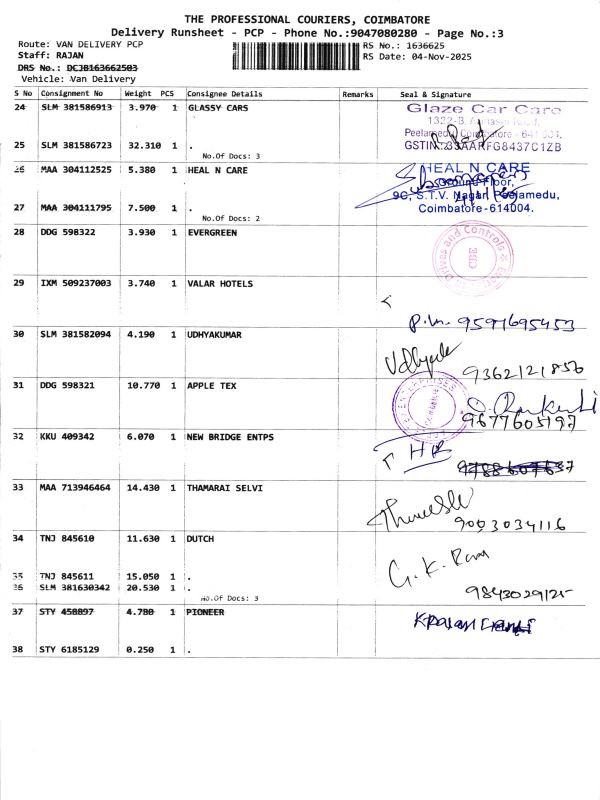 THE PROFESSIONAL COURIERS, COIMBATORE
Delivery Runsheet - PCP - Phone No.:9047080280 - Page No.:3
Route: VAN DELIVERY PCP
RS No.: 1636625
Staff: RAJAN
RS Date: 04-Nov-2025
DRS No.: DCJB163662503
Vehicle: Van Delivery
S No Consignment No Weight PCS Consignee Details Remarks Seal & Signature
24 SLM 381586913 3.970 1 GLASSY CARS
Glaze Car Care
25 SLM 381586723 32.310 1 .
GSTIN:33AARFG8437C1ZB
No.Of Docs: 3
26 MAA 304112525 5.380 1 HEAL N CARE
HEAL N CARE
Ground Floor,
9C, S.T.V. Nagar, Peelamedu,
27 MAA 304111795 7.500 1 .
Coimbatore-614004.
No.Of Docs: 2
28 DDG 598322 3.930 1 EVERGREEN
Drives and Controls
CBE
29 IXM 509237003 3.740 1 VALAR HOTELS
P.M. 9591695453
30 SLM 381582094 4.190 1 UDHYAKUMAR
9362121856
31 DDG 598321 10.770 1 APPLE TEX
9677605197
32 KKU 409342 6.070 1 NEW BRIDGE ENTPS
HR
33 MAA 713946464 14.430 1 THAMARAI SELVI
9003034116
34 TNJ 845610 11.630 1 DUTCH
G.K. Ram
35 TNJ 845611 15.050 1 .
36 SLM 381630342 20.530 1 .
9843029125
No.Of Docs: 3
37 STY 458897 4.780 1 PIONEER
38 STY 6185129 0.250 1 .